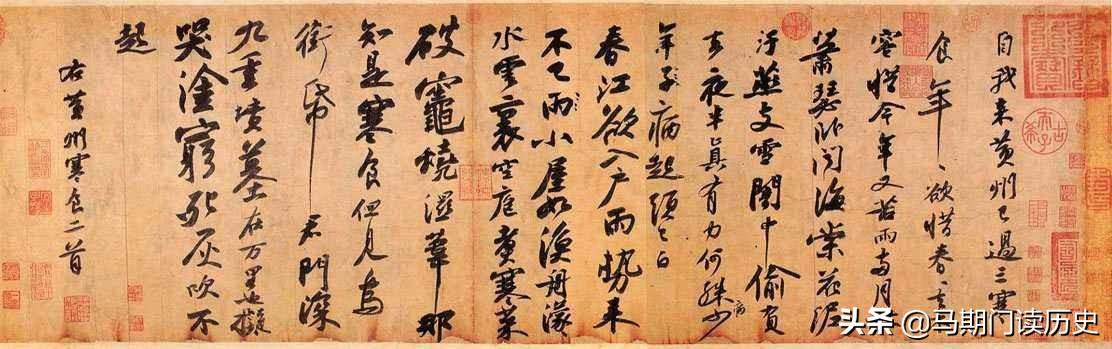 自我来黄州已過三寒
食年〻欲惜春〻去不
容惜今年又苦雨兩月秋
蕭瑟卧聞海棠花泥
汙燕支雪闇中偷負
去夜半真有力何殊少病
年子病起頭已白
春江欲入户雨勢来
不已雨小屋如漁舟濛〻
水雲裏空庖煮寒菜
破竈燒濕葦那
知是寒食但見烏
銜帋君門深
九重墳墓在万里也擬
哭塗窮死灰吹不
起
右黄州寒食二首
头条 @马期门读历史